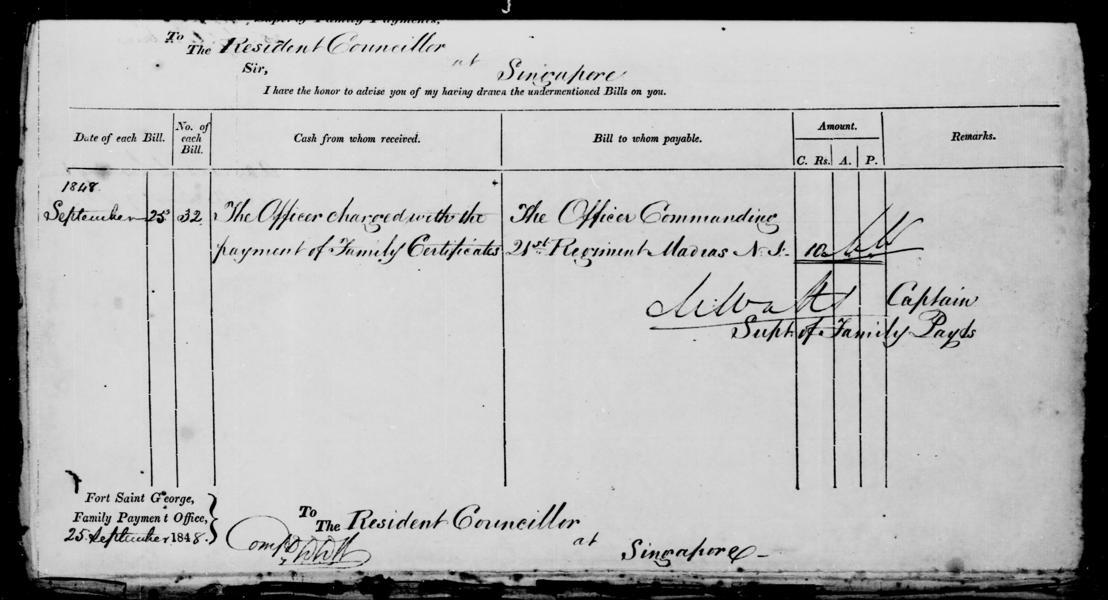 Supt. of Family Payments,
To
The Resident Councillor
at Singapore
Sir,
I have the honor to advise you of my having drawn the undermentioned Bills on you.
Date of each Bill. No. of each Bill. Cash from whom received. Bill to whom payable. Amount. C. Rs. A. P. Remarks.
1848
September 25 32 The Officer charged with the The Officer Commanding
payment of Family Certificates 21st Regiment Madras N. I. 10
Captain
Supt. of Family Paymts
Fort Saint George,
Family Payment Office,
25 September 1848.
To
The Resident Councillor
at Singapore
Compd